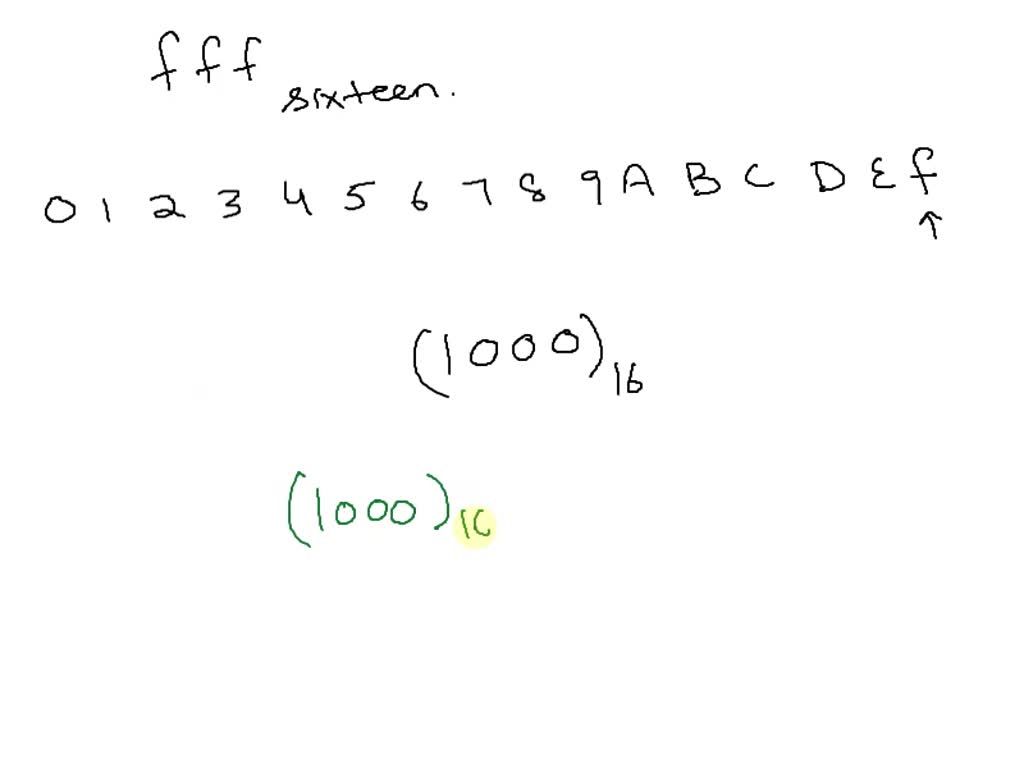 fff sixteen.
0 1 2 3 4 5 6 7 8 9 A B C D E f
↑
(1000)16
(1000)1C